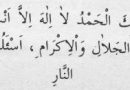 كَ الْحَمْدُ لَا اِلٰهَ اِلَّا اَنْ
الْجَلَالِ وَالْاِكْرَامِ، اَسْئَلُ
النَّارِ